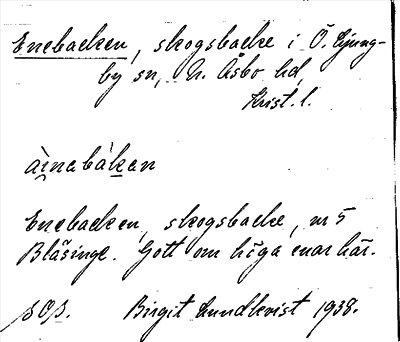 Enebacken, skogsbacke i Ö. Ljung-
by sn, N. Åsbo hd,
Krist. l.
àı̀nabàkan
Enebacken, skogsbacke, nr 5
Bläsinge. Gott om höga enar här.
Birgit Lundkvist 1938.